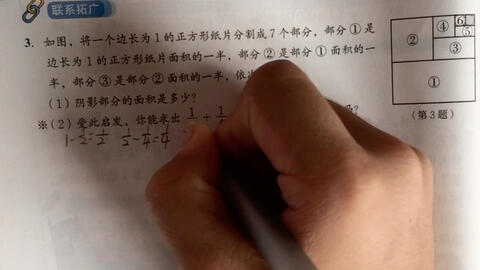 联系拓广
3. 如图，将一个边长为1的正方形纸片分割成7个部分，部分①是
边长为1的正方形纸片面积的一半，部分②是部分①面积的一
半，部分③是部分②面积的一半，依次
(1) 阴影部分的面积是多少？
※(2) 受此启发，你能求出 1/ + 1/
1-1/2=1/2 1/2-1/4=1/4
② ④ 6 ⑤
③
①
(第3题)